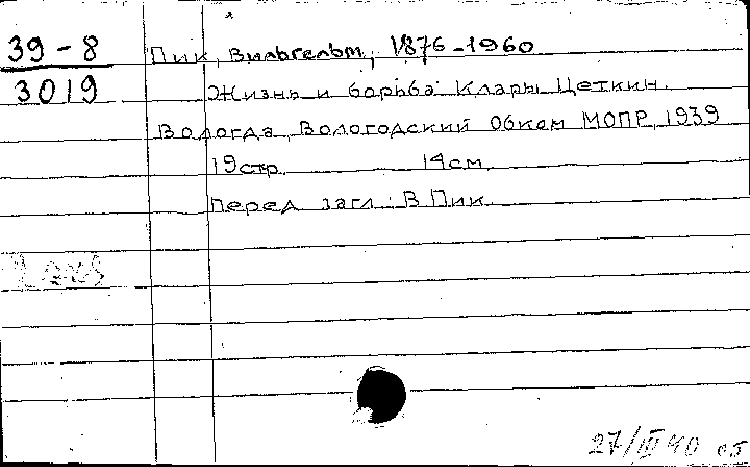 39-8
3019
Пик, Вильгельм, 1876-1960
Жизнь и борьба Клары Цеткин.
Вологда, Вологодский Обком МОПР, 1939
19 стр. 14 см.
Перед загл.: В. Пик
2 экз
27/III 40 сб